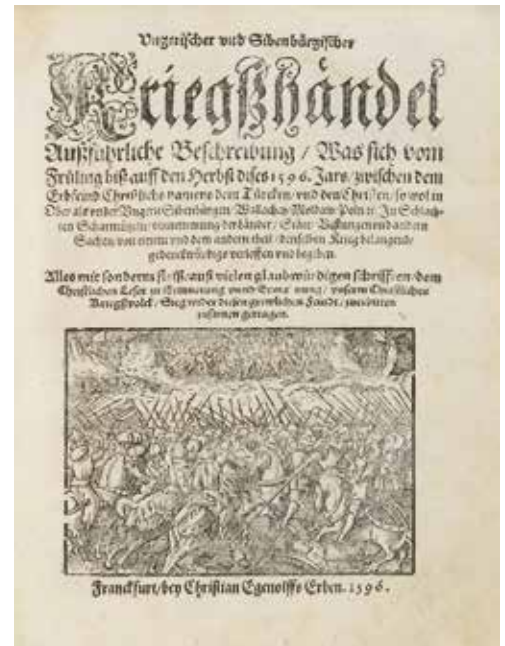 Vngerischer vnd Sibenbürgischer
Kriegßhändel
Außführliche Beschreibung / Was sich vom
Früling biß auff den Herbst dises 1596. Jars / zwischen dem
Erbfeind Christlichs namens dem Türcken / vnd den Christen / so wol in
Ober als vnder Vngern Sibenbürgen / Wallachey Moldaw Poln
ten Scharmützeln / der Städt / Vestungen vnd andern
Sachen von einem vnd dem andern theil / denselben Krieg belangend /
gedenckwürdigs verloffen vnd begeben.
Alles mit sonderm fleiß / auß vielen glaubwürdigen schrifften / dem
Christlichen Leser zu vnnd / vnserm Christlichen
Kriegßvolck / Sieg wider diesen Feindt / zuerbitten
zusamen getragen.
Franckfurt / bey Christian Egenolffs Erben. 1596.